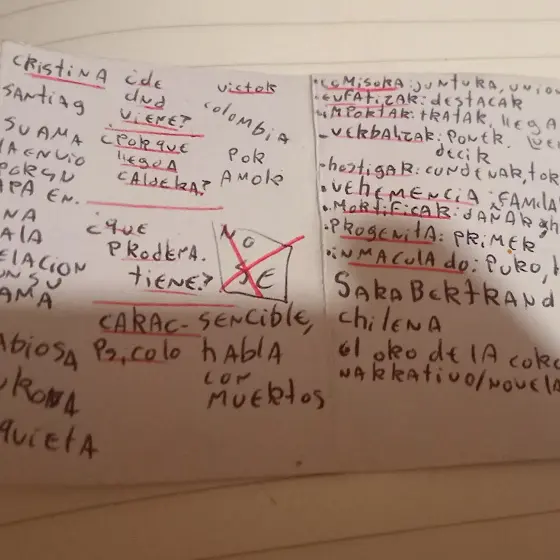 CRISTINA
SANTIAG
SU AMA
LA ENVIO
POR SU
APA EN.
NA
ALA
ELACION
ON SU
AMA
ABIOSA
UKONA
QUIETA
¿DE
DND
VIENE?
¿PORQUE
llEGOA
CALDERA?
¿QUE
PRODEMA.
TIENE?
CARAC-
PSICOLO
VICTOR
COLOMBIA
POR
AMOR
NO
SE
SENCIBLE,
hABLA
CON
MUERtOS
·COMISURA: JUNTURA, UNION
·ENFATIZAR: DESTACAR
·IMPORTAR: TRATAR, llEGA
-VERBALIZAR: PONER.
DECIR
-hostigAR: CONDENAR, TOR
·VEHEMENCIA: FAMILA
·MORTIFICAR: DAÑAR
·PROGENITA: PRIMER
·INMACULADO: PURO,
SARA BERtRAND
ChilENA
El ORO DE lA CORO
NARRATIVO/NOVELA